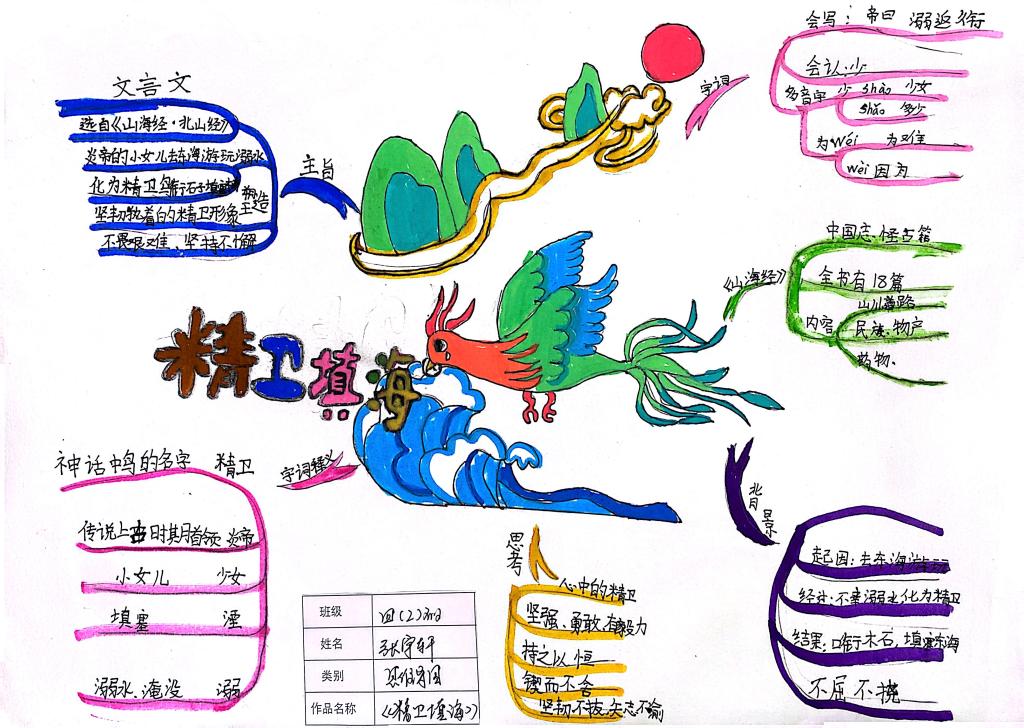 文言文
选自《山海经·北山经》
炎帝的小女儿去东海游玩溺水
化为精卫鸟衔石子填
塑造
坚韧执着的精卫形象
不畏艰难、坚持不懈
主旨
字词
会写：帝曰 溺返衔
会认：少
多音字 少 shào 少女
shǎo 多少
为 wéi 为难
wèi 因为
《山海经》
中国志怪古籍
全书有18篇
内容
山川道路
民族、物产
药物、
精卫填海
字词释义
神话中鸟的名字 精卫
传说上古时期首领 炎帝
小女儿 少女
填塞 湮
溺水、淹没 溺
思考
心中的精卫
坚强、勇敢、有毅力
持之以恒
锲而不舍
坚韧不拔、矢志不渝
背景
起因：去东海游玩
经过：不幸溺水化为精卫
结果：衔木石，填东海
不屈不挠
班级 四（2）班
姓名 张宇轩
类别 思维导图
作品名称 《精卫填海》